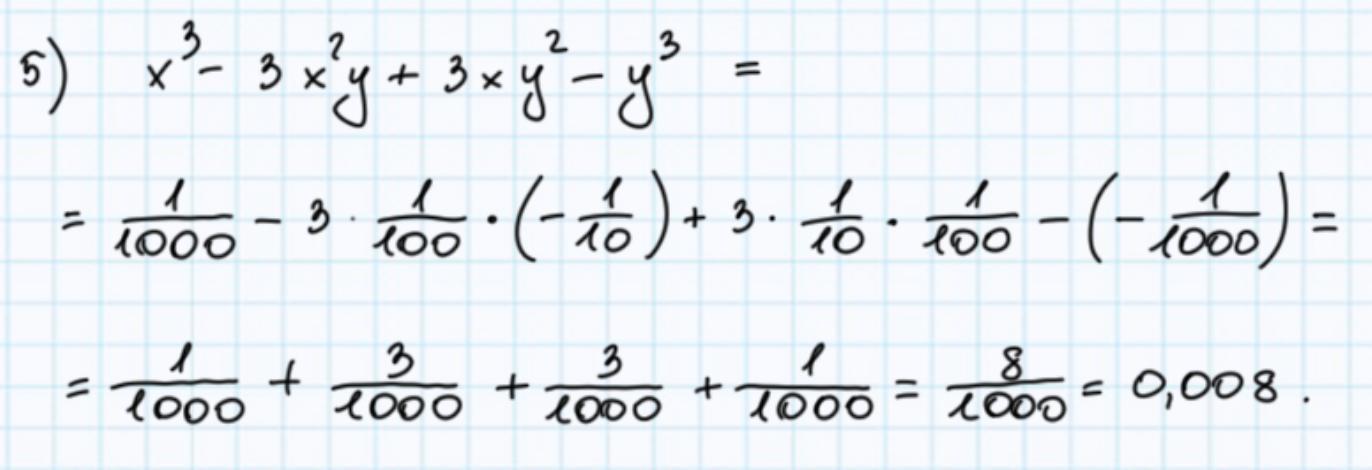 5) x³ - 3x²y + 3xy² - y³ =
= 1/1000 - 3 · 1/100 · (-1/10) + 3 · 1/10 · 1/100 - (-1/1000) =
= 1/1000 + 3/1000 + 3/1000 + 1/1000 = 8/1000 = 0,008.